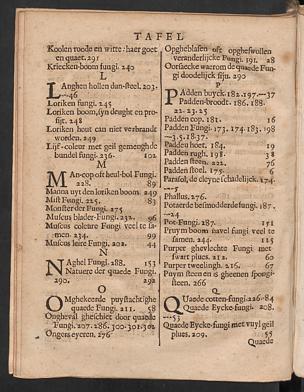 TAFEL
Koolen roode en witte: haer goet
en quaet. 291
Kriecken-boom fungi. 240
L
LAnghen hollen dun-steel. 203.
—46
Loriken fungi. 245
Loriken boom, syn deught en pro-
fijt. 248
Loriken hout can niet verbrandt
worden. 249
Lijf-coleur met geil gemenghde
bundel fungi. 236. 102
M
MAn-cop oft heul-bol Fungi.
228. 89
Manna uyt den loriken boom 249
Mist Fungi. 225. 83
Monster der Fungi. 275
Muscus blader-Fungi. 232. 96
Muscus coleure Fungi veel te sa-
men. 234. 99
Muscus leire Fungi. 202. 44
N
NAghel Fungi. 288. 153
Natuere der quaede Fungi.
290. 292
O
OMghekeerde puystachtighe
quaede Fungi. 211. 58
Ongheval gheschiet door quaede
Fungi. 207. 286. 300. 301. 302
Ongers eyeren. 276
Opgheblasen oft opgheswollen
veranderlijcke Fungi. 191. 28
Oorsaecke waerom de quade Fun-
gi doodelijck sijn. 290
P
PAdden buyck. 182. 197.—37
Padden-broodt. 186. 188.
22. 23. 25
Padden cop. 181. 16
Padden Fungi. 173. 174. 183. 198
—3. 5. 18. 37.
Padden hoet. 184. 19
Padden rugh. 198. 38
Padden steen. 221. 76
Padden stoel. 175. 6
Parasol, de cleyne schadelijck. 174.
—5
Phallus. 276.
Potaerde besmodderde fungi. 187.
—24
Pot-Fungi. 287. 151
Pruym boom navel fungi veel te
samen. 244. 115
Purper ghevlechte Fungi met
swart plues. 212. 60
Purper tweelingh. 216. 67
Puym steen en is gheenen spongi-
steen. 266
Q
QUaede cotten-fungi. 226-84
Quaede Eycke-fungi. 208.
—53
Quaede Eycke-fungi met vuyl geil
plues. 209. 55
Quaede